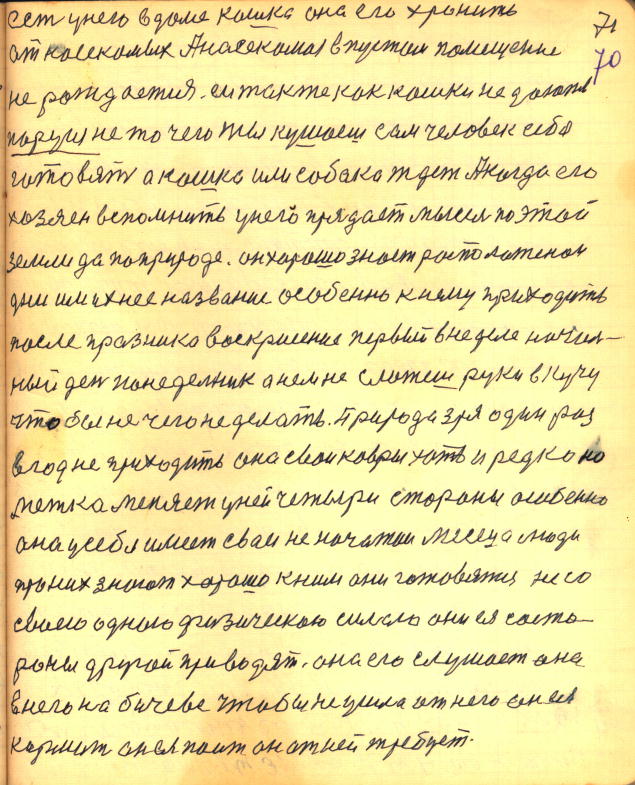 сет унего вдоме кошка она его хронить
71
от насекомых Анасекомая впустом помещение
70
не рождается. ситакте как кошки не
не то чего ты кушаеш сам человек себя
готовять а кошка или собака ждет Акогда его
хозяен вспомнить унего прядает мысля поэтой
земли да поприроде. он хорошо знает росположеноя
дни им ихнее название особенно книму приходить
после празника воскрисение первый внеделе ночол-
ный ден понеделник анемне сложеш руки вкучу
чтобы не чего неделать. природа зря один раз
вгод не приходить она свои ковры хоть и редко но
метко меняет уней четыри стороны особенно
она усебя имеет сваи не початаи месеца люди
проних знают хорошо кним они готовятц несо
своею одного физическою силою они ея соста-
роны другой приводят. она его слушает она
внего на бичеве чтобы не ушла от него он ея
кормит он ея поит он отней требует.